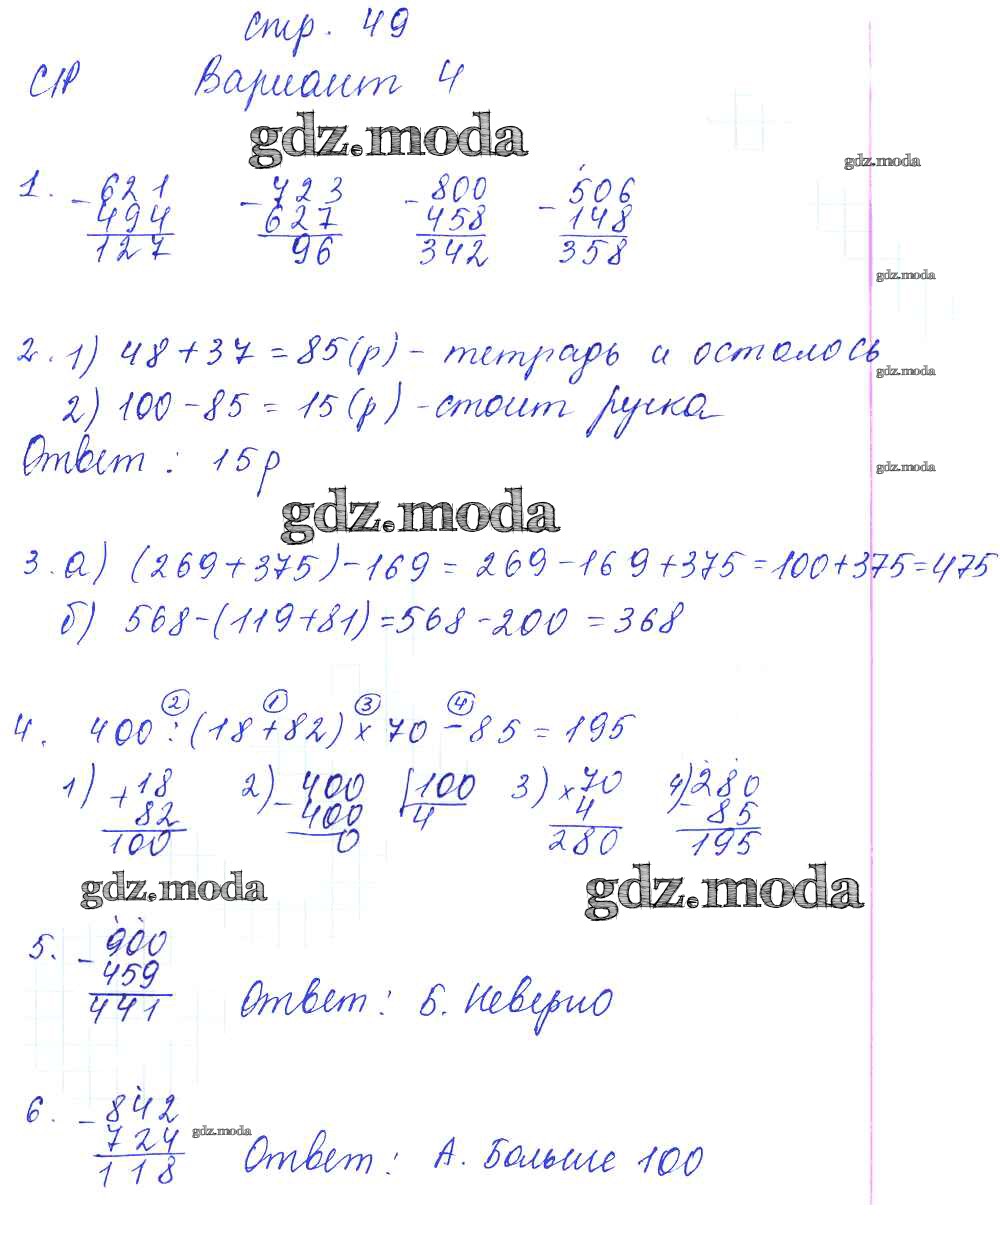 стр. 49
С/Р Вариант 4
gdz.moda
gdz.moda
1. - 621 - 723 - 800 - 506
494 627 458 148
127 96 342 358
gdz.moda
2. 1) 48 + 37 = 85 (р) - тетрадь и осталось
gdz.moda
2) 100 - 85 = 15 (р) - стоит ручка
Ответ : 15 р
gdz.moda
gdz.moda
3. а) (269 + 375) - 169 = 269 - 169 + 375 = 100 + 375 = 475
б) 568 - (119 + 81) = 568 - 200 = 368
2 1 3 4
4. 400 : (18 + 82) × 70 - 85 = 195
1) + 18 2) - 400 | 100 3) × 70 4) - 280
82 400 4 4 85
100 0 280 195
gdz.moda
gdz.moda
5. - 900
459
441 Ответ : Б. Неверно
6. - 842
724 gdz.moda
118 Ответ : А. Больше 100